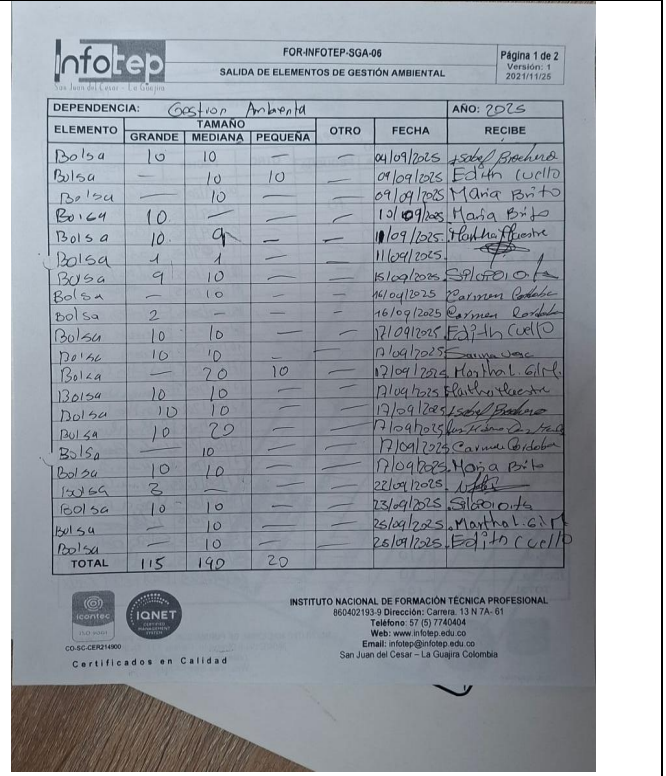 Infotep
San Juan del Cesar - La Guajira
FOR-INFOTEP-SGA-06
SALIDA DE ELEMENTOS DE GESTIÓN AMBIENTAL
Página 1 de 2
Versión: 1
2021/11/25
DEPENDENCIA: Gestion Ambienta AÑO: 2025
ELEMENTO TAMAÑO OTRO FECHA RECIBE
GRANDE MEDIANA PEQUEÑA
Bolsa 10 10 — — 04/09/2025 Isabel Brochero
Bolsa — 10 10 — 09/09/2025 Edith Cuello
Bolsa — 10 — — 09/09/2025 Maria Brito
Bolsa 10 — — — 10/09/2025 Maria Brito
Bolsa 10 9 — — 11/09/2025 Martha Maestre
Bolsa 1 1 — — 11/09/2025
Bolsa 9 10 — — 15/09/2025
Bolsa — 10 — — 16/09/2025 Carmen Cordoba
Bolsa 2 — — — 16/09/2025 Carmen Cordoba
Bolsa 10 10 — — 17/09/2025 Edith Cuello
Bolsa 10 10 — — 17/09/2025
Bolsa — 20 10 — 17/09/2025 Martha L. Gil M.
Bolsa 10 10 — — 17/09/2025 Martha Maestre
Bolsa 10 10 — — 17/09/2025 Isabel Brochero
Bolsa 10 20 — — 17/09/2025
Bolsa — 10 — — 17/09/2025 Carmen Cordoba
Bolsa 10 10 — — 17/09/2025 Maria Brito
Bolsa 3 — — — 22/09/2025
Bolsa 10 10 — — 23/09/2025
Bolsa — 10 — — 25/09/2025 Martha L. Gil M
Bolsa — 10 — — 25/09/2025 Edith Cuello
TOTAL 115 190 20
icontec
ISO 9001
CO-SC-CER214900
IQNET
CERTIFIED
MANAGEMENT
SYSTEM
Certificados en Calidad
INSTITUTO NACIONAL DE FORMACIÓN TÉCNICA PROFESIONAL
860402193-9 Dirección: Carrera. 13 N 7A- 61
Teléfono: 57 (5) 7740404
Web: www.infotep.edu.co
Email: infotep@infotep.edu.co
San Juan del Cesar – La Guajira Colombia